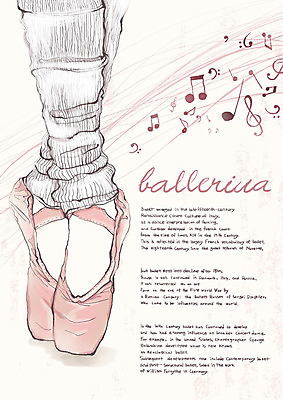 ballerina
Ballet emerged in the late fifteenth-century
Renaissance court culture of Italy,
as a dance interpretation of fencing,
and further developed in the French court
from the time of Louis XIV in the 17th century.
This is reflected in the largely French vocabulary of ballet.
The eighteenth century saw the great reforms of Noverre,
but ballet went into decline after 1830,
though it was continued in Denmark, Italy, and Russia.
It was
on the eve of the First World War by
a Russian Company: the Ballets Russes of Sergei Diaghilev,
who came to be influential around the world.
In the 20th century ballet has continued to develop
and has had a strong influence on broader concert dance.
For example, in the United States, choreographer George
Balanchine developed what is now known
as neoclassical ballet.
Subsequent developments now include contemporary ballet
and post-structural ballet, seen in the work
of William Forsythe in Germany.